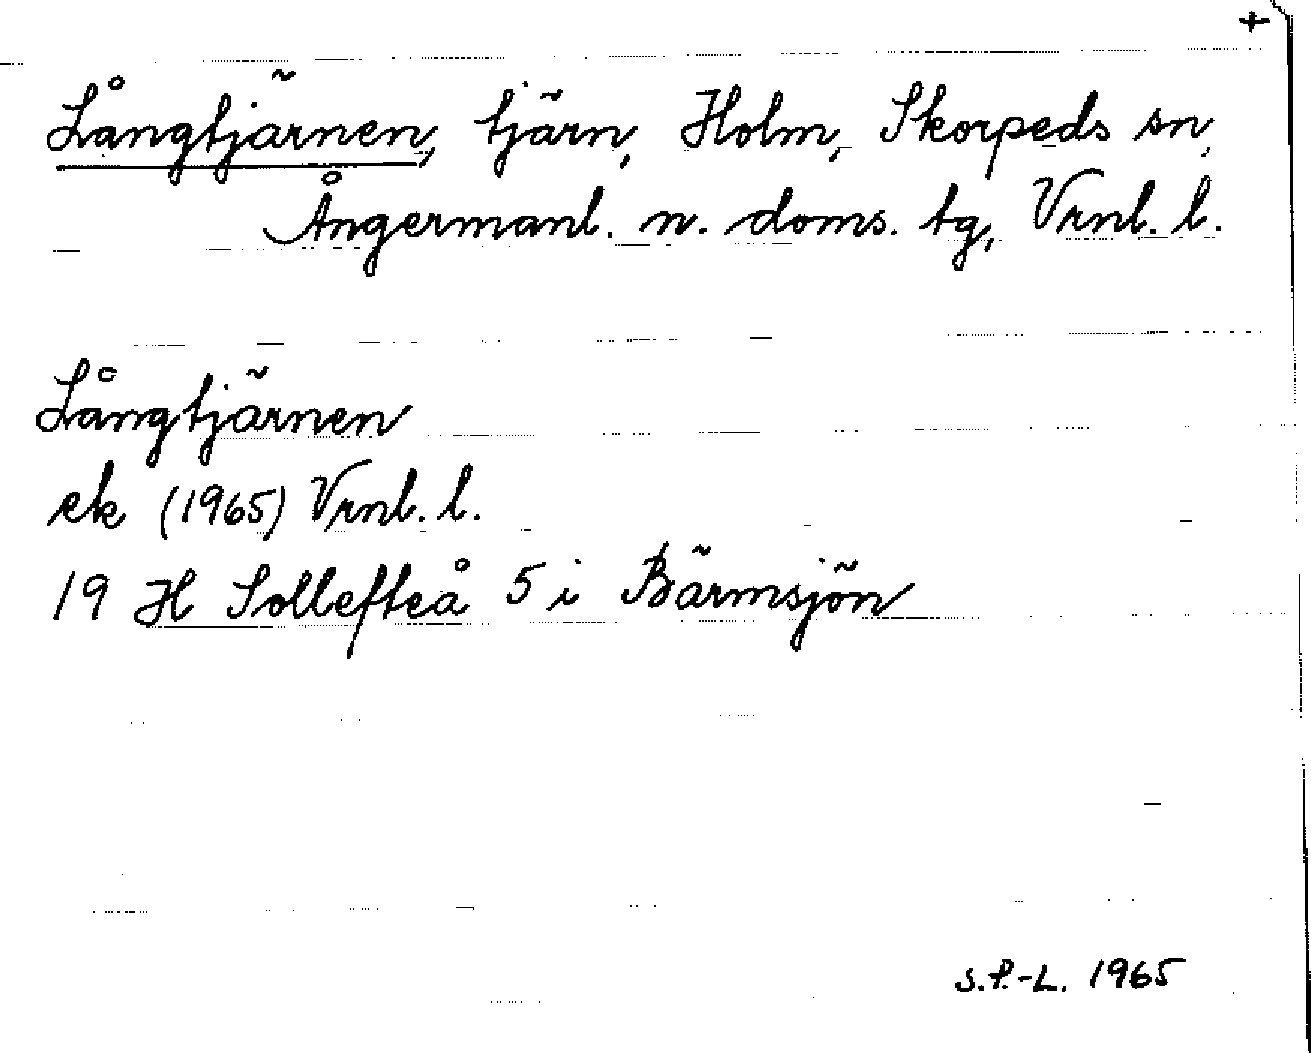 +
Långtjärnen, tjärn, Holm, Skorpeds sn,
Ångermanl. n. doms. tg, Vrnl. l.
Långtjärnen
ek (1965) Vrnl. l.
19 H Sollefteå 5 i Bärmsjön
S.P.-L. 1965